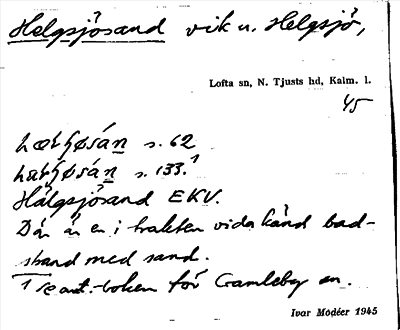 Helgsjösand vik u. Helgsjö,
Lofta sn, N. Tjusts hd, Kalm. l.
45
s. 62
s. 133.¹
Hälgsjösand EKV.
Där är en i trakten vida känd bad-
strand med sand.
¹ se ant.-boken för Gamleby sn.
Ivar Modéer 1945